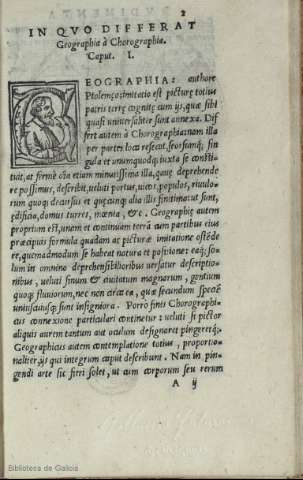 2
IN QVO DIFFERAT
Geographia à Chorographia.
Caput. I.
GEOGRAPHIA: authore
Ptolemæo imitatio est picturę totius
patris terrę cognitę cum ijs, quę sibi
quasi uniuersaliter sunt annexa. Dif
fert autem à Chorographia: nam illa
per partes loca resecat, seorsumq́; sin
gula et unumquodq; iuxta se consti
tuit, at fermè oĩa etiam minutissima illa, quę deprehende
re possimus, describit, ueluti portus, uicos, populos, riuulo
rum quoq; decursus et quęcunq; alia illis finitima ut sunt,
ædificia, domus turres, mœnia, &c. Geographię autem
proprium est, unam et continuam terrā cum partibus eius
præcipuis formula quadam ac picturæ imitatione ostēde
re, quemadmodum se habeat natura et positione: eaq́; so=
lum in omnino deprehensibilioribus uersatur descriptio=
nibus, ueluti sinuum & ciuitatum magnarum, gentium
quoq; fluuiorum, nec non circa ea, quæ secundum speciē
unūquodq; sunt insigniora. Porro finis Chorographi=
cus connexione particulari continetur: ueluti si pictor
aliquis aurem tantum aut oculum designaret pingeretq́;.
Geographicus autem contemplatione totius, proportio=
naliter, ijs qui integrum caput describunt. Nam in pin=
gendi arte sic fieri solet, ut cum corporum seu rerum
A ij
Biblioteca de Galicia